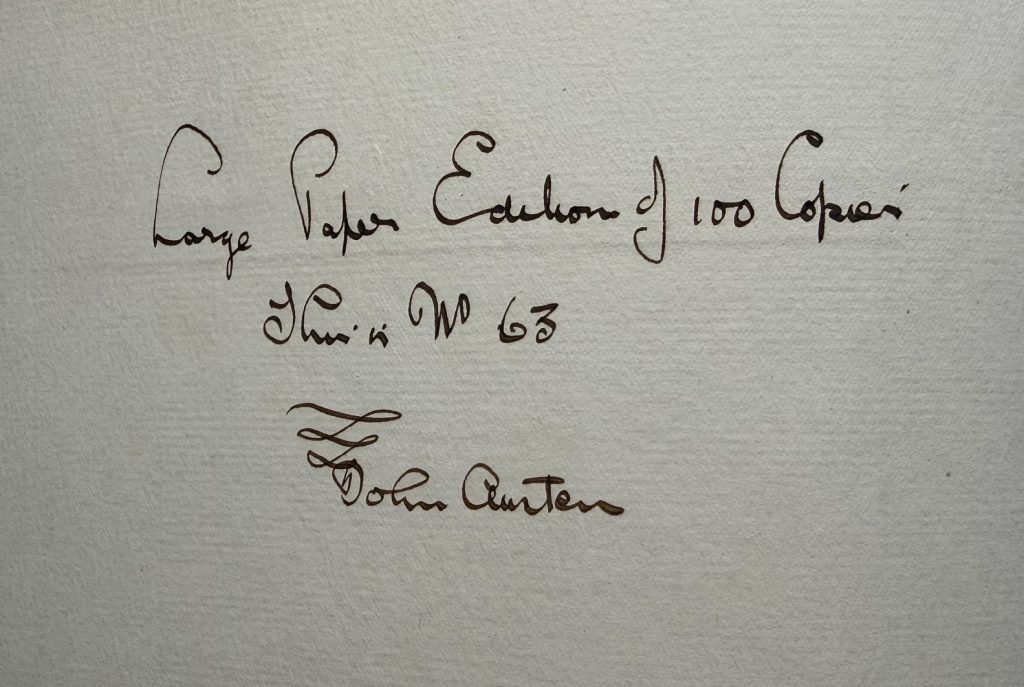 Large Paper Edition of 100 Copies
This is No 63
John Austen